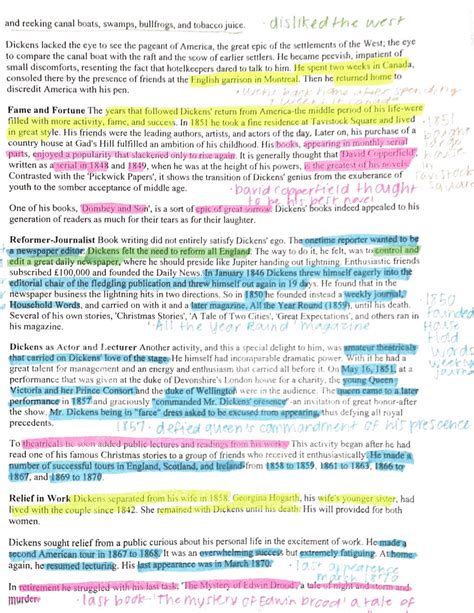 and reeking canal boats, swamps, bullfrogs, and tobacco juice.
disliked the west
Dickens lacked the eye to see the pageant of America, the great epic of the settlements of the West; the eye
to compare the canal boat with the raft and the scow of earlier settlers. He became peevish, impatient of
small discomforts, resenting the fact that hotelkeepers dared to talk to him. He spent two weeks in Canada,
consoled there by the presence of friends at the English garrison in Montreal. Then he returned home to
discredit America with his pen.
went back home after spending
Fame and Fortune The years that followed Dickens' return from America-the middle period of his life-were
filled with more activity, fame, and success. In 1851 he took a fine residence at Tavistock Square and lived
in great style. His friends were the leading authors, artists, and actors of the day. Later on, his purchase of a
country house at Gad's Hill fulfilled an ambition of his childhood. His books, appearing in monthly serial
parts, enjoyed a popularity that slackened only to rise again. It is generally thought that 'David Copperfield',
written as a serial in 1848 and 1849, when he was at the height of his powers, is the greatest of his novels.
Contrasted with the 'Pickwick Papers', it shows the transition of Dickens' genius from the exuberance of
youth to the somber acceptance of middle age.
1851
Tavistock
Square
David Copperfield thought
to be his best novel
One of his books, 'Dombey and Son', is a sort of epic of great sorrow. Dickens' books indeed appealed to his
generation of readers as much for their tears as for their laughter.
Reformer-Journalist Book writing did not entirely satisfy Dickens' ego. The onetime reporter wanted to be
a newspaper editor. Dickens felt the need to reform all England. The way to do it, he felt, was to control and
edit a great daily newspaper, where he should preside like Jupiter handing out lightning. Enthusiastic friends
subscribed £100,000 and founded the Daily News. In January 1846 Dickens threw himself eagerly into the
editorial chair of the fledgling publication and threw himself out again in 19 days. He found that in the
newspaper business the lightning hits in two directions. So in 1850 he founded instead a weekly journal,
Household Words, and carried on with it and a later magazine, All the Year Round (1859), until his death.
Several of his own stories, 'Christmas Stories', 'A Tale of Two Cities', 'Great Expectations', and others ran in
his magazine.
"All the Year Round" magazine
1850
Founded
House
Hold
Words
weekly
Dickens as Actor and Lecturer Another activity, and this a special delight to him, was amateur theatricals
that carried on Dickens' love of the stage. He himself had incomparable dramatic power. With it he had a
great talent for management and an energy and enthusiasm that carried all before it. On May 16, 1851, at a
performance that was given at the duke of Devonshire's London house for a charity, the young Queen
Victoria and her Prince Consort and the duke of Wellington were in the audience. The queen came to a later
performance in 1857 and graciously "commanded Mr. Dickens' presence"-an invitation of great honor-after
the show. Mr. Dickens being in "farce" dress asked to be excused from appearing, thus defying all royal
precedents.
1857- defied queen's commandment of his prescence
To theatricals he soon added public lectures and readings from his works. This activity began after he had
read one of his famous Christmas stories to a group of friends who received it enthusiastically. He made a
number of successful tours in England, Scotland, and Ireland-from 1858 to 1859, 1861 to 1863, 1866 to
1867, and 1869 to 1870.
Relief in Work Dickens separated from his wife in 1858. Georgina Hogarth, his wife's younger sister, had
lived with the couple since 1842. She remained with Dickens until his death. His will provided for both
women.
Dickens sought relief from a public curious about his personal life in the excitement of work. He made a
second American tour in 1867 to 1868. It was an overwhelming success but extremely fatiguing. At home
again, he resumed lecturing. His last appearance was in March 1870.
last appearence
march 1870
In retirement he struggled with his last task, 'The Mystery of Edwin Drood', a tale of night and storm and
murder.
last book- The mystery of Edwin brood' a tale of